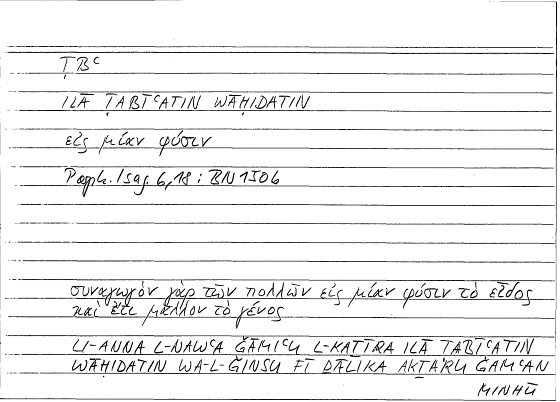 ṬBᶜ
ILĀ ṬABĪᶜATIN WĀḤIDATIN
εἰς μίαν φύσιν
Porph. Isag. 6,18 : BN 1506
συναγωγὸν γὰρ τῶν πολλῶν εἰς μίαν φύσιν τὸ εἶδος
καὶ ἔτι μᾶλλον τὸ γένος
LI-ANNA L-NAWᶜA ĞĀMIᶜU L-KAṮĪRA ILĀ ṬABĪᶜATIN
WĀḤIDATIN WA-L-ĞINSU FĪ ḎĀLIKA AKṮARU ĞAMᶜAN
MINHŪ